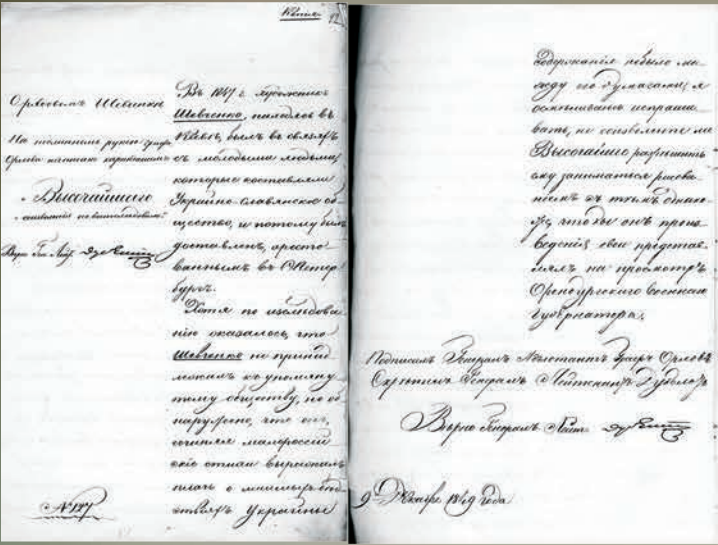 Копия
12
Орловымъ Шевченки
На подлинномъ рукою Графа
Орлова написано карандашемъ:
„Высочайшаго
Верно: Ген. Лейт. Дубельтъ
№ 137
Въ 1847 г. художникъ
Шевченко, находясь въ
Кіевѣ, былъ въ связяхъ
съ молодыми людьми,
которые составляли
Украйно-славянское об-
щество, и потому былъ
доставленъ, аресто-
ваннымъ въ С. Петер-
бургъ.
Хотя по изслѣдова-
нію оказалось, что
Шевченко не принад-
лежалъ къ упомяну-
тому обществу, но об-
наружено, что онъ,
сочиняя малороссій-
скіе стихи выражалъ
плачь о мнимыхъ бѣд-
ствіяхъ Украйны
Содержанія небыло ме-
жду его бумагами; я
осмѣливаюсь испраши-
вать, не соизволите ли
Высочайше разрѣшить
ему заниматься рисова-
ніемъ съ тѣмъ однако-
же, чтобы онъ произ-
веденія свои представ-
лялъ на просмотръ
Оренбургскаго Военнаго
Губернатора.
Подписалъ Генералъ Адъютантъ Графъ Орловъ
Скрѣпилъ Генералъ Лейтенантъ Дубельтъ
Вѣрно: Генералъ Лейт. Дубельтъ
9 Декабря 1849 года